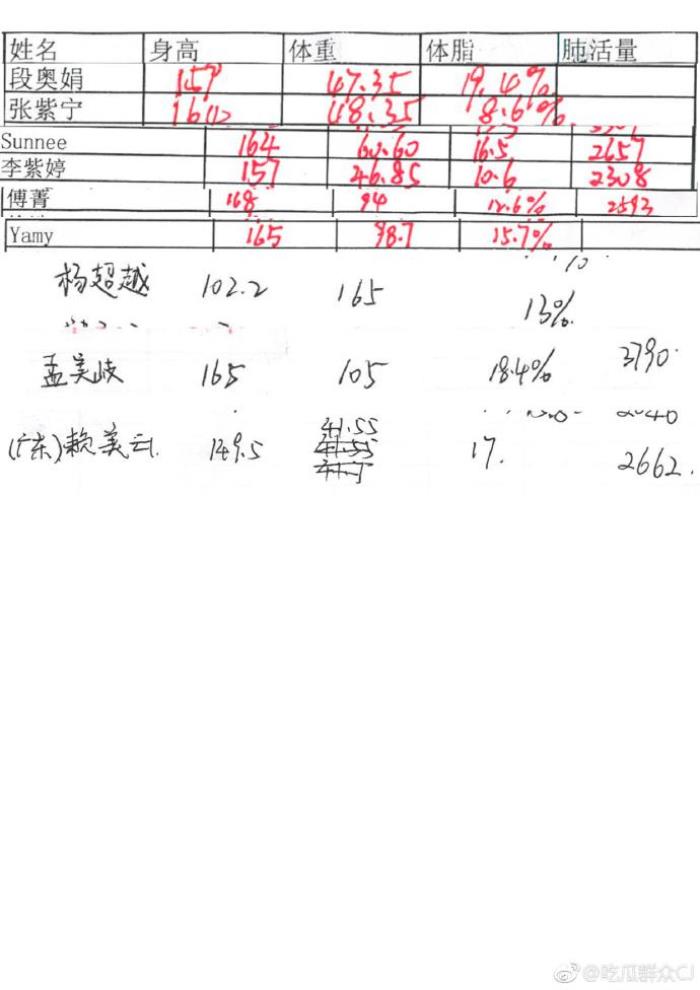 姓名 身高 体重 体脂 肺活量
段奥娟 157 47.35 19.4%
张紫宁 160 48.35 8.6%
Sunnee 164 60.60 16.5 2657
李紫婷 157 46.85 10.6 2308
傅菁 168 94 12.6% 2593
Yamy 165 98.7 15.7%
杨超越 102.2 165 13%.
孟美岐 165 105 18.4% 3790
(广东)赖美云. 149.5 41.55 17. 2662.
@吃瓜群众CJ